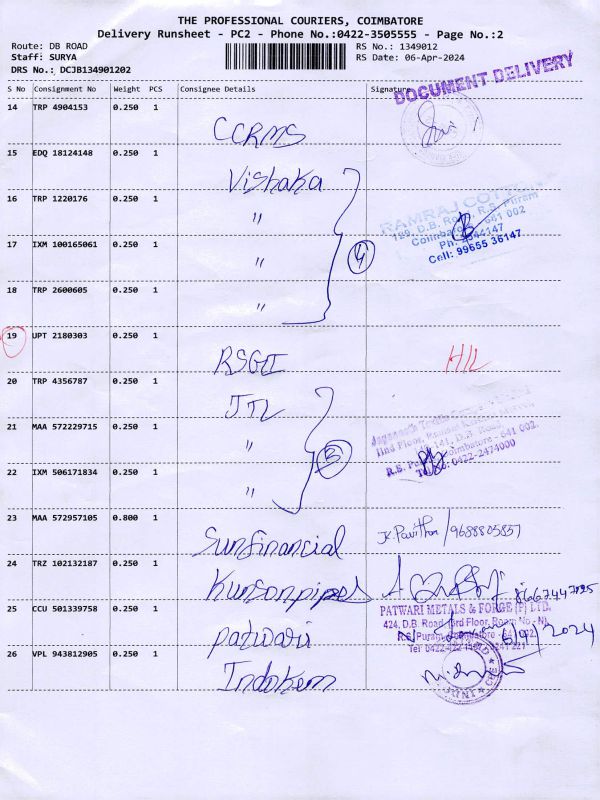 THE PROFESSIONAL COURIERS, COIMBATORE
Delivery Runsheet - PC2 - Phone No.:0422-3505555 - Page No.:2
Route: DB ROAD RS No.: 1349012
Staff: SURYA RS Date: 06-Apr-2024
DRS No.: DCJB134901202
DOCUMENT DELIVERY
S No Consignment No Weight PCS Consignee Details Signature
14 TRP 4904153 0.250 1 CCRMS
15 EDQ 18124148 0.250 1 Vishaka
16 TRP 1220176 0.250 1 "
RAMRAJ COTTON
189, D.B. Road, R.S. Puram
Coimbatore - 641 002
Ph: 4344147
Cell: 99655 36147
17 IXM 100165061 0.250 1 " 4
18 TRP 2600605 0.250 1 "
19 UPT 2180303 0.250 1 RSGI
20 TRP 4356787 0.250 1 JTL
21 MAA 572229715 0.250 1 "
IInd Floor,
141, D.B. Road
R.S. Puram, Coimbatore - 641 002.
Tel No: 0422-2474000
22 IXM 506171834 0.250 1 " 3
23 MAA 572957105 0.800 1 Sunfinancial JK.Pavithra/9688805857
24 TRZ 102132187 0.250 1 Kunsonpipes
25 CCU 501339758 0.250 1 patwari
PATWARI METALS & FORGE (P) LTD.
424, D.B. Road, (3rd Floor, Room No - N),
R.S. Puram, Coimbatore - 641 002.
6/4/2024
26 VPL 943812905 0.250 1 Indokem